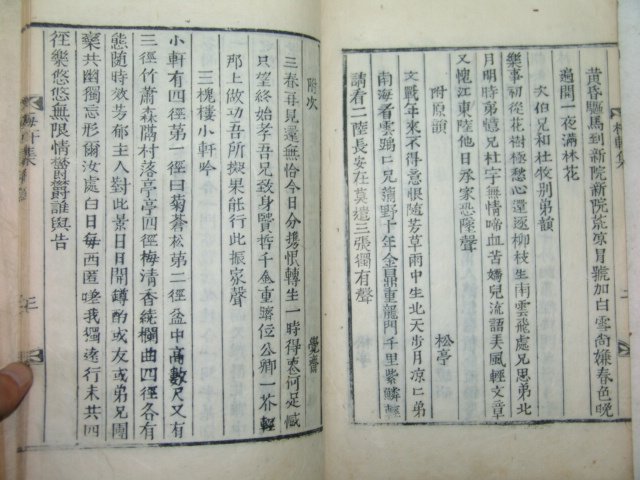 黃昏驅馬到新院新院荒凉冒號加白雲尙嫌春色晚
遍問一夜滿林花
次伯兄和杜牧別弟韻
樂事初從花樹極愁心還逐柳枝生南雲飛處兄思弟北
月明時弟憶兄杜宇無情啼血苦嬌兒流語美風輕文章
又愧江東陸他日承家恐墜聲
附原韻 松亭
文戰年來不意恨隨芳草雨中生北天步月凉凉弟
南海看雲鴈鴈兄蒲野十年金鼎重龍門千里紫鱗輕
請看二陸長安在莫遣三張獨有聲
附次 覺齋
三春每見還無恰今日分携恨轉生一時得喪何足慽
只望終始孝吾兄致身賢哲千金重躋位公卿一芥輕
那上做功吾所擬果能行此振家聲
三槐樓小軒吟
小軒有四徑第一徑菊蒼松第二徑盆中高數尺又有
三徑竹蕭森鷄村落亭亭四徑梅清香繞欄曲四徑各有
態隨時效芳郁主人對此景日日開罇酌或友或弟兄團
欒共幽獨忘形爾汝處白日每西匿嗟我獨遠行未共四
徑樂悠悠無限情鬱鬱誰與告